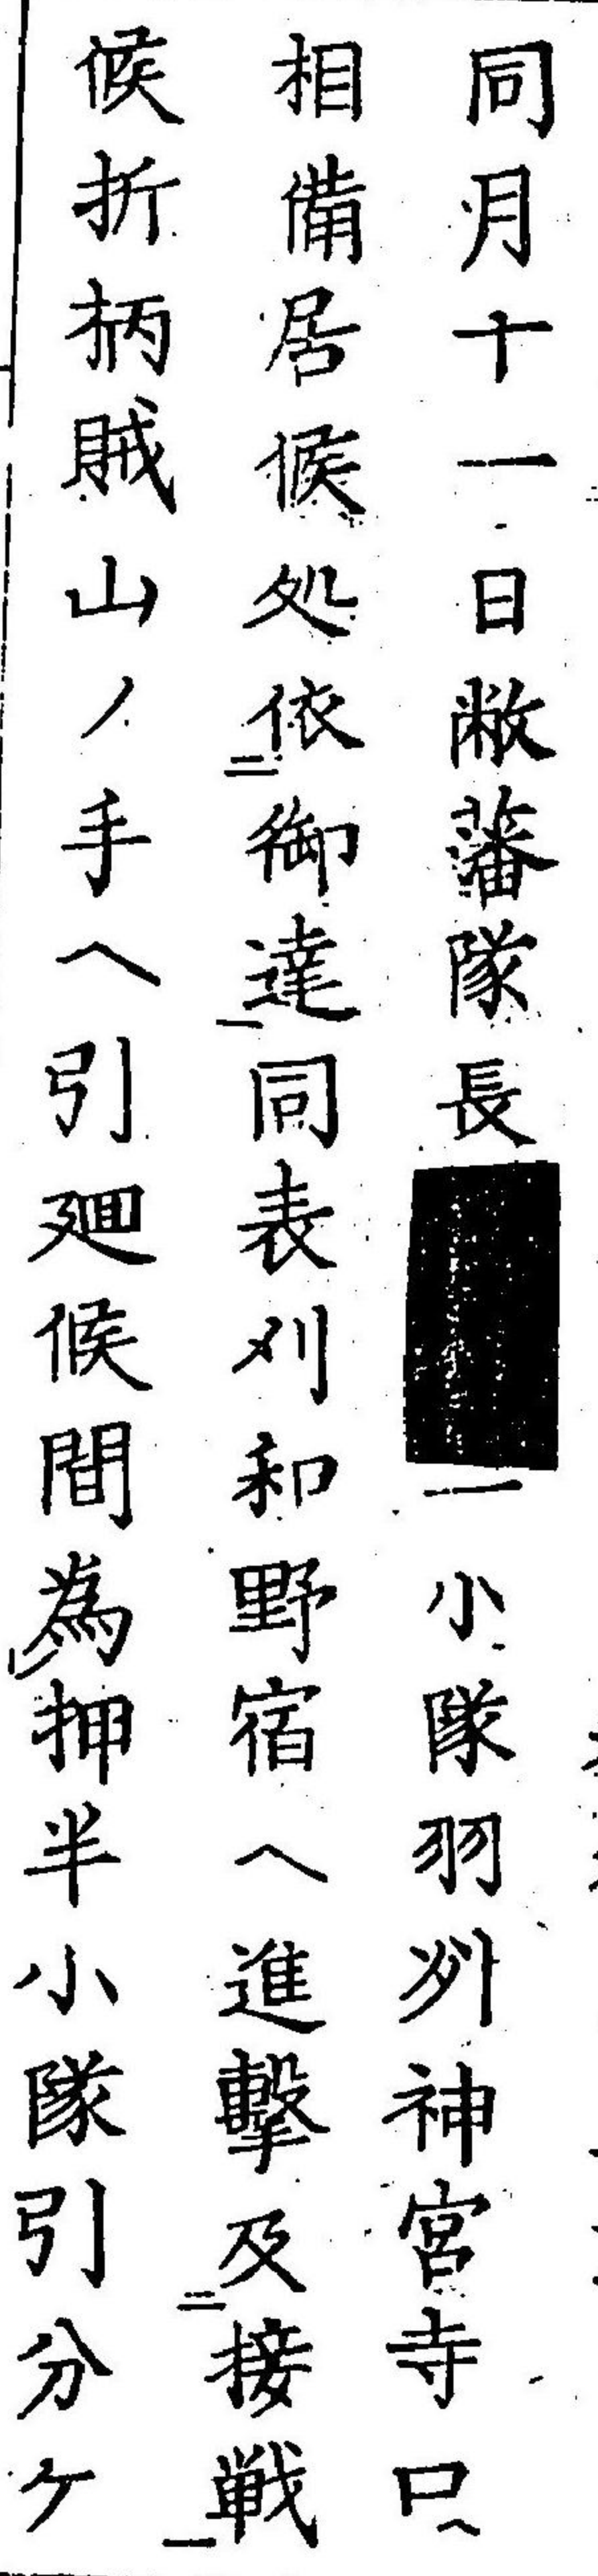 同月十一日敝藩隊長一小隊羽州神宮寺口ヘ
相備居候処依二御達一同表刈和野宿ヘ進撃及二接戦一
候折柄賊山ノ手ヘ引廻候間為レ押半小隊引分ケ